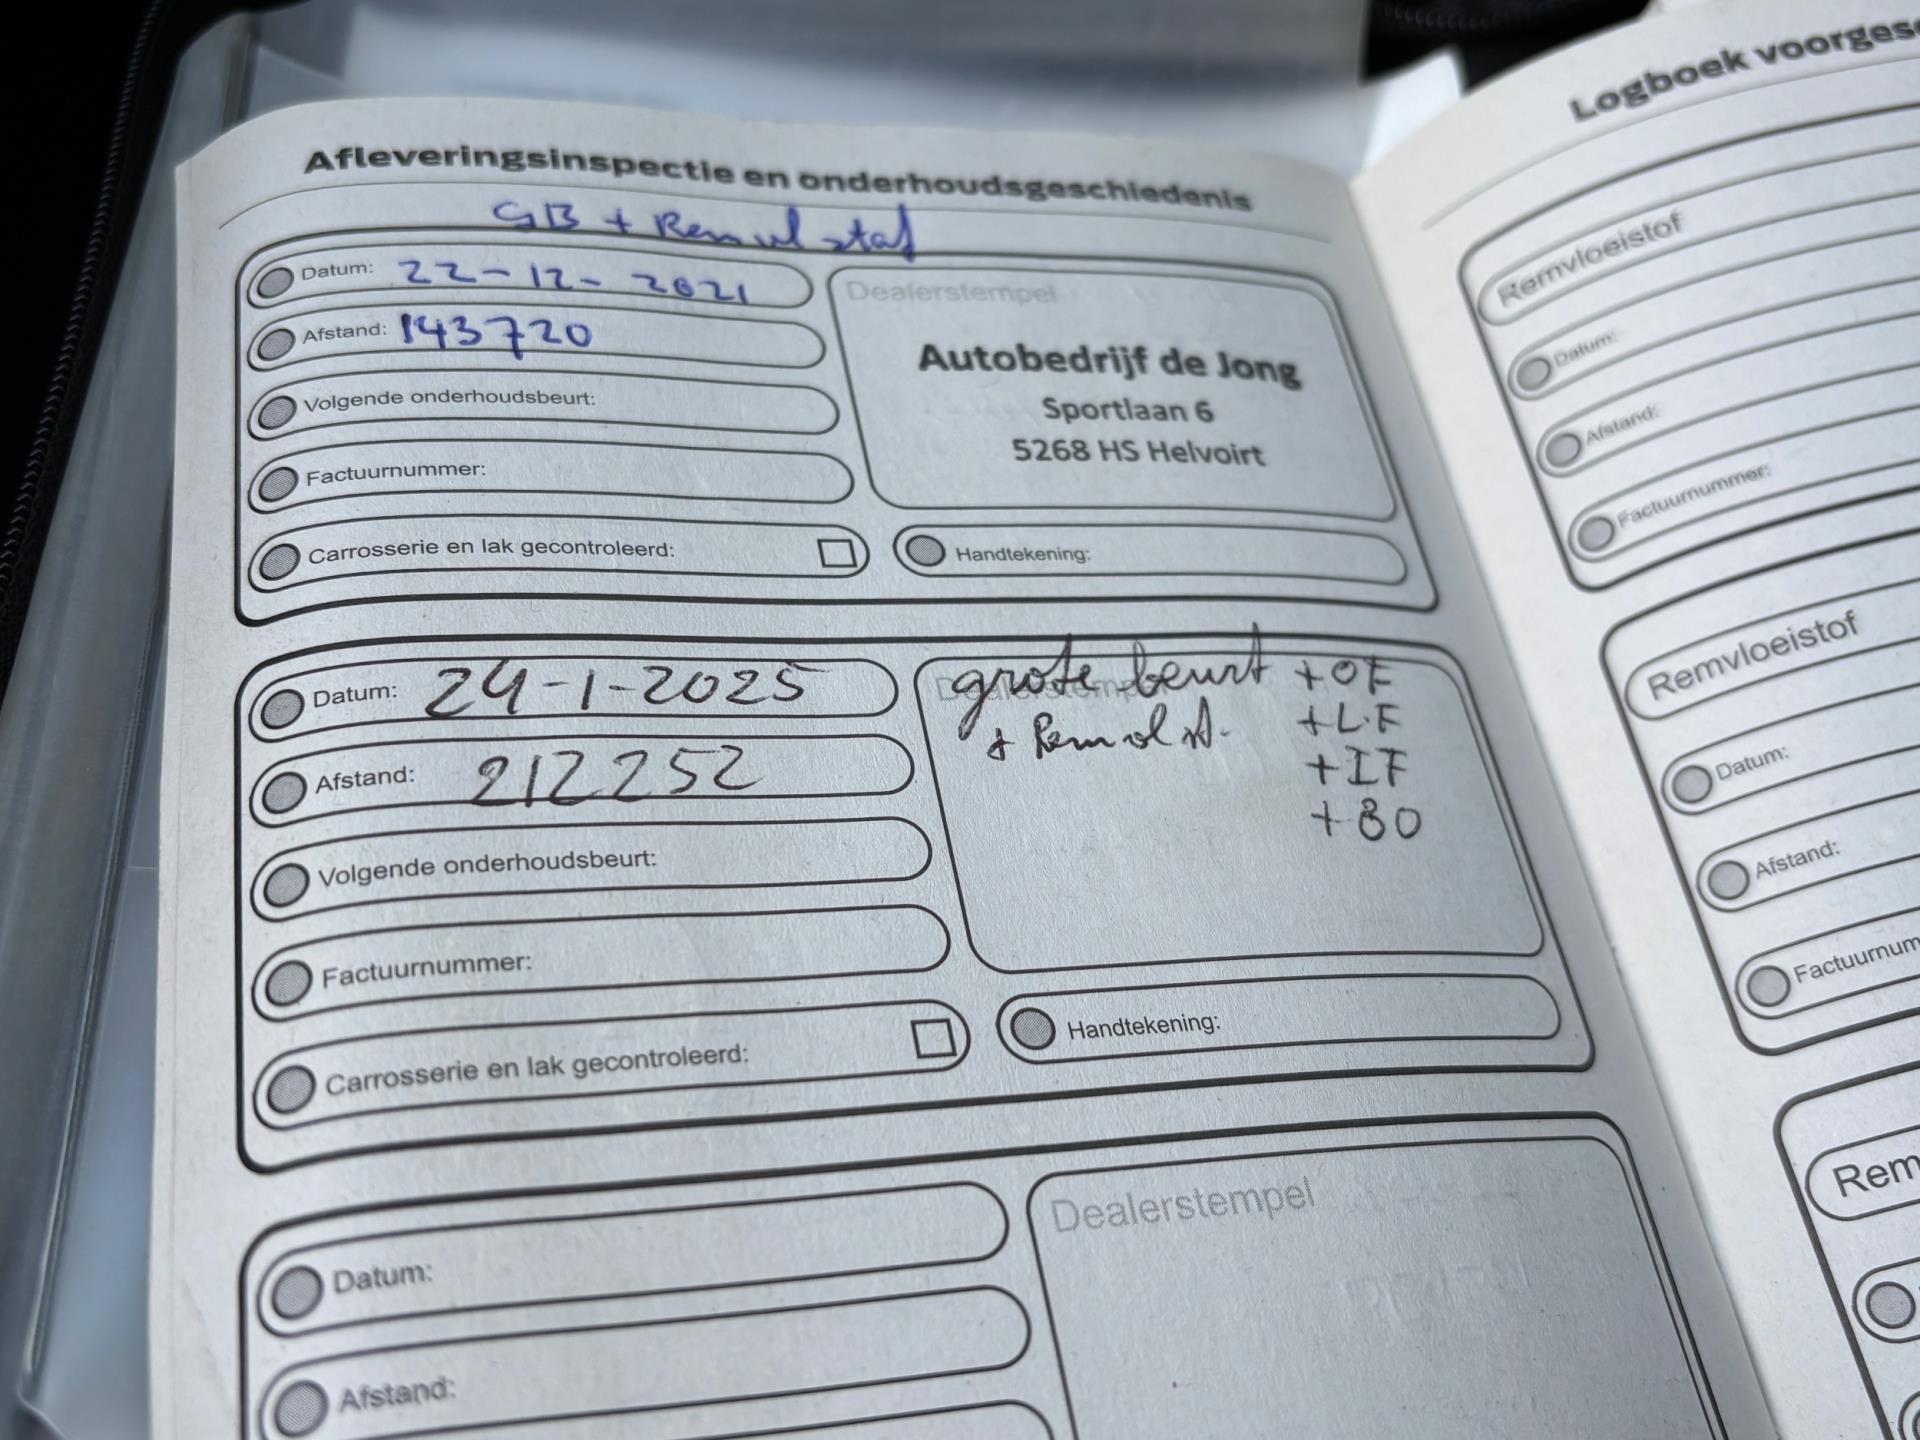 Afleveringsinspectie en onderhoudsgeschiedenis
GB + Remvlstof
Datum: 22-12-2021
Afstand: 143720
Volgende onderhoudsbeurt:
Factuurnummer:
Carrosserie en lak gecontroleerd:
Dealerstempel
Autobedrijf de Jong
Sportlaan 6
5268 HS Helvoirt
Handtekening:
Datum: 24-1-2025
Afstand: 212252
Volgende onderhoudsbeurt:
Factuurnummer:
Carrosserie en lak gecontroleerd:
Dealerstempel
grote beurt + OF
+ Remvlst. + L.F
+ IF
+ BO
Handtekening:
Datum:
Afstand:
Dealerstempel
Logboek voorgesc
Remvloeistof
Datum:
Afstand:
Factuurnummer:
Remvloeistof
Datum:
Afstand:
Factuurnum
Rem